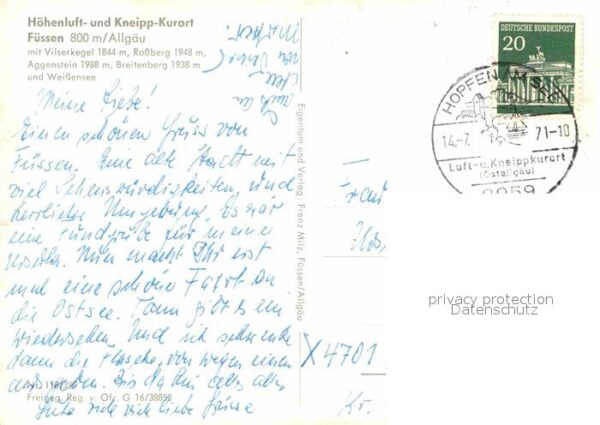 Höhenluft- und Kneipp-Kurort
Füssen 800 m/Allgäu
mit Vilserkegel 1844 m, Roßberg 1948 m,
Aggenstein 1988 m, Breitenberg 1938 m
und Weißensee
Meine Liebe!
Einen schönen Gruss von
Füssen. Eine alte Stadt mit
viel Sehenswürdigkeiten, und
herrlicher Umgebung. Es wär
eine für meine
Nun macht Ihr erst
mal eine schöne Fahrt an
die Ostsee. Dann gibt es ein
wiedersehen. Und ich schwenke
dann die Flasche, von wegen einen
Bis dahin alles alles
Gute viele viele liebe Grüsse
Freigeg. Reg. v. Ofr. G 16/38852
Eigentum und Verlag: Franz Milz, Füssen/Allgäu
DEUTSCHE BUNDESPOST
20
HOPFEN AM SEE
14.-7. 71-10
Luft- u. Kneippkurort
(Ostallgäu)
8959
X4701
Kr.
privacy protection
Datenschutz